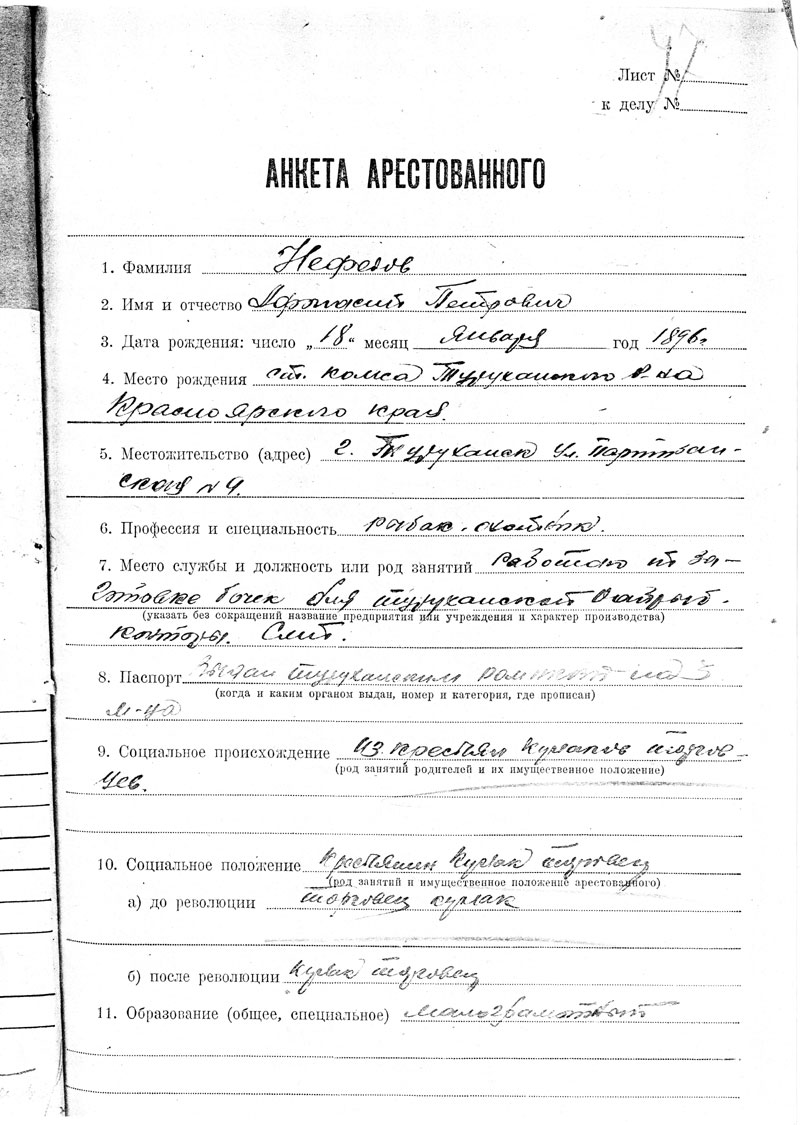 47
Лист №
к делу №
АНКЕТА АРЕСТОВАННОГО
1. Фамилия Нефедов
2. Имя и отчество Афанасий Петрович
3. Дата рождения: число „18“ месяц января год 1896г.
4. Место рождения ст. Комса Туруханского р-на
Красноярского края.
5. Местожительство (адрес) г. Туруханск ул. Партизан-
ская №9.
6. Профессия и специальность рыбак-охотник.
7. Место службы и должность или род занятий работаю по за-
готовке бочек для туруханской
(указать без сокращений название предприятия или учреждения и характер производства)
конторы.
8. Паспорт Выдан туруханским на 3
(когда и каким органом выдан, номер и категория, где прописан)
м-ца
9. Социальное происхождение Из крестьян кулаков торгов-
цев.
(род занятий родителей и их имущественное положение)
10. Социальное положение Крестьянин кулак торговец
(род занятий и имущественное положение арестованного)
а) до революции торговец кулак
б) после революции кулак торговец
11. Образование (общее, специальное) малограмотный